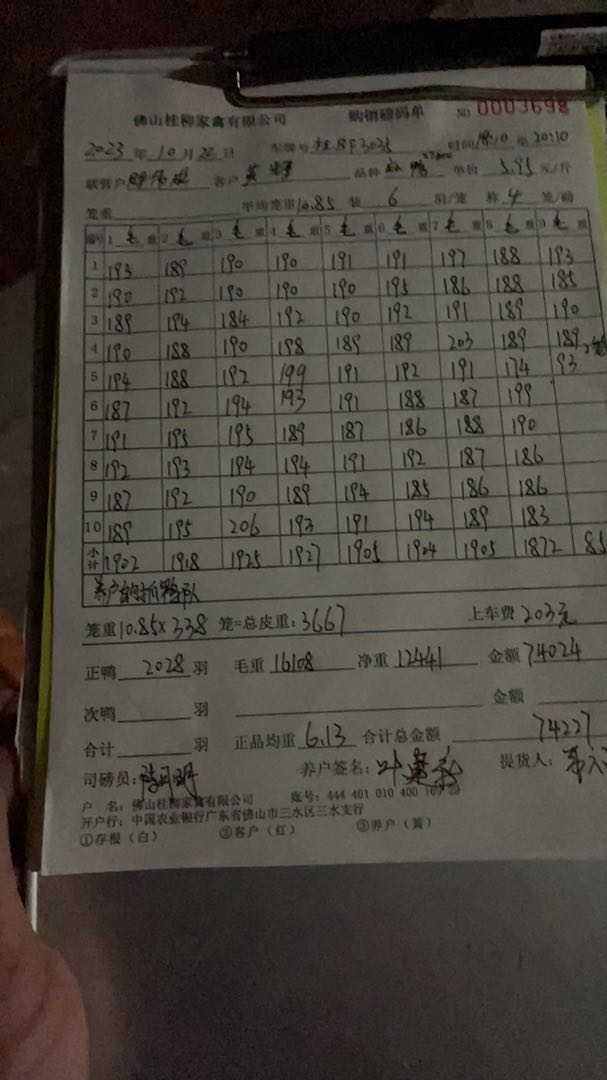 佛山桂柳家禽有限公司 购销磅码单 NO 0003698
2023 年 10 月 日 车牌号 时间 至 20:10
联营户 客户 品种 鸭 单价 5.95 元/斤
笼重 平均笼重 10.85 装 6 羽/笼 称 4 笼/磅
编号 1 毛重 2 毛重 3 毛重 4 毛重 5 毛重 6 毛重 7 毛重 8 毛重 9 毛重
1 193 189 190 190 191 191 197 188 193
2 190 192 190 190 190 195 186 188 185
3 189 194 184 192 190 192 191 189 190
4 190 188 190 198 189 189 203 189 189
5 194 188 192 199 191 192 191 174 93
6 187 192 194 193 191 188 187 199
7 191 195 195 189 187 186 188 190
8 192 193 194 194 191 192 187 186
9 187 192 190 189 194 185 186 186
10 189 195 206 193 191 194 189 183
小计 1902 1918 1925 1927 1905 1904 1905 1872 85
养户自己抓鸭队
笼重 10.85×338 笼=总皮重: 3667 上车费 203元
正鸭 2028 羽 毛重 16108 净重 12441 金额 74024
次鸭 羽 金额
合计 羽 正品均重 6.13 合计总金额 74227
司磅员: 养户签名: 叶 提货人:
户 名: 佛山桂柳家禽有限公司 账号: 444 401 010 400
开户行: 中国农业银行广东省佛山市三水区三水支行
①存根（白） ②客户（红） ③养户（黄）